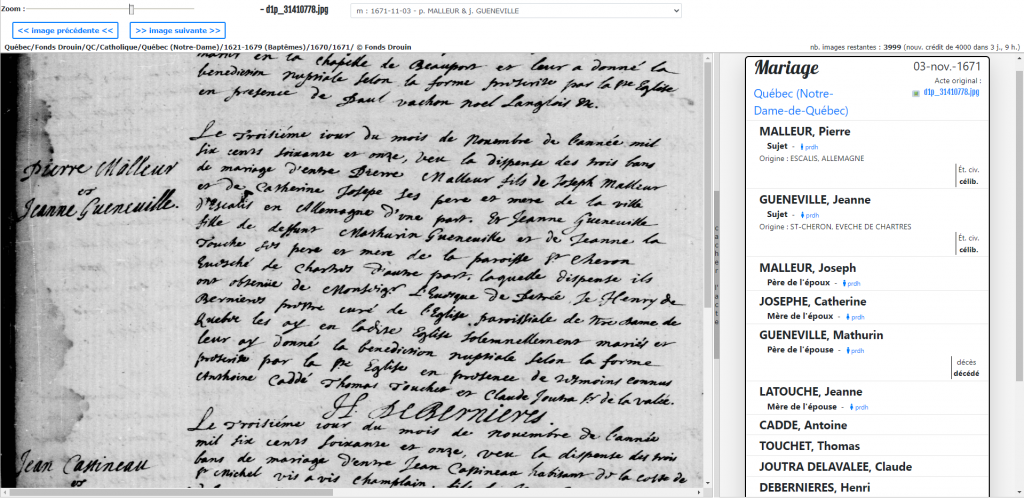 Zoom :
- d1p_31410778.jpg
m : 1671-11-03 - p. MALLEUR & j. GUENEVILLE
<< image précédente <<
>> image suivante >>
Québec/Fonds Drouin/QC/Catholique/Québec (Notre-Dame)/1621-1679 (Baptêmes)/1670/1671/ © Fonds Drouin
nb. images restantes : 3999 (nouv. crédit de 4000 dans 3 j., 9 h.)
en la chapelle de Beauport et leur a donné la
benediction nuptiale selon la forme prescrite par la Ste Eglise
en presence de Paul vachon noel Langlois &c.
Pierre Malleur
et
Jeanne Gueneuille.
Le troisiéme iour du mois de Nouembre de l'année mil
six cents soixante et onze, veu la dispense des trois bans
de mariage d'entre Pierre Malleur fils de Joseph Malleur
et de Catherine Josepe ses pere et mere de la ville
d'Escalis en Allemagne d'une part. Et Jeanne Gueneuille
fille de deffunt Mathurin Gueneuille et de Jeanne la
Touche ses pere et mere de la paroisse St Cheron
Euesché de Chartres d'autre part. laquelle dispense ils
ont obtenue de Monseigr L'Euesque de Petrée Je Henry de
Bernieres prestre curé de l'Eglise parroissiale de nre Dame de
Quebec les ay en ladite Eglise solemnellement mariés et
leur ay donné la benediction nuptiale selon la forme
prescrite par la Ste Eglise en presence de tesmoins connus
Anthoine Caddé Thomas Touchet et Claude Joutra Sr de la valée.
H. DeBernieres.
Jean Cassineau
et
Le troisiéme iour du mois de nouembre de l'année
mil six cents soixante et onze, veu la dispense des trois
bans de mariage d'entre Jean Cassineau habitant de la coste de
St michel vis a vis champlain,
cacher l'acte
Mariage
03-nov.-1671
Acte original :
d1p_31410778.jpg
Québec (Notre-
Dame-de-Québec)
MALLEUR, Pierre
Sujet - prdh
Origine : ESCALIS, ALLEMAGNE
Ét. civ.
célib.
GUENEVILLE, Jeanne
Sujet - prdh
Origine : ST-CHERON, EVECHE DE CHARTRES
Ét. civ.
célib.
MALLEUR, Joseph
Père de l'époux - prdh
JOSEPHE, Catherine
Mère de l'époux - prdh
GUENEVILLE, Mathurin
Père de l'épouse - prdh
décès
décédé
LATOUCHE, Jeanne
Mère de l'épouse - prdh
CADDE, Antoine
TOUCHET, Thomas
JOUTRA DELAVALEE, Claude
DEBERNIERES, Henri